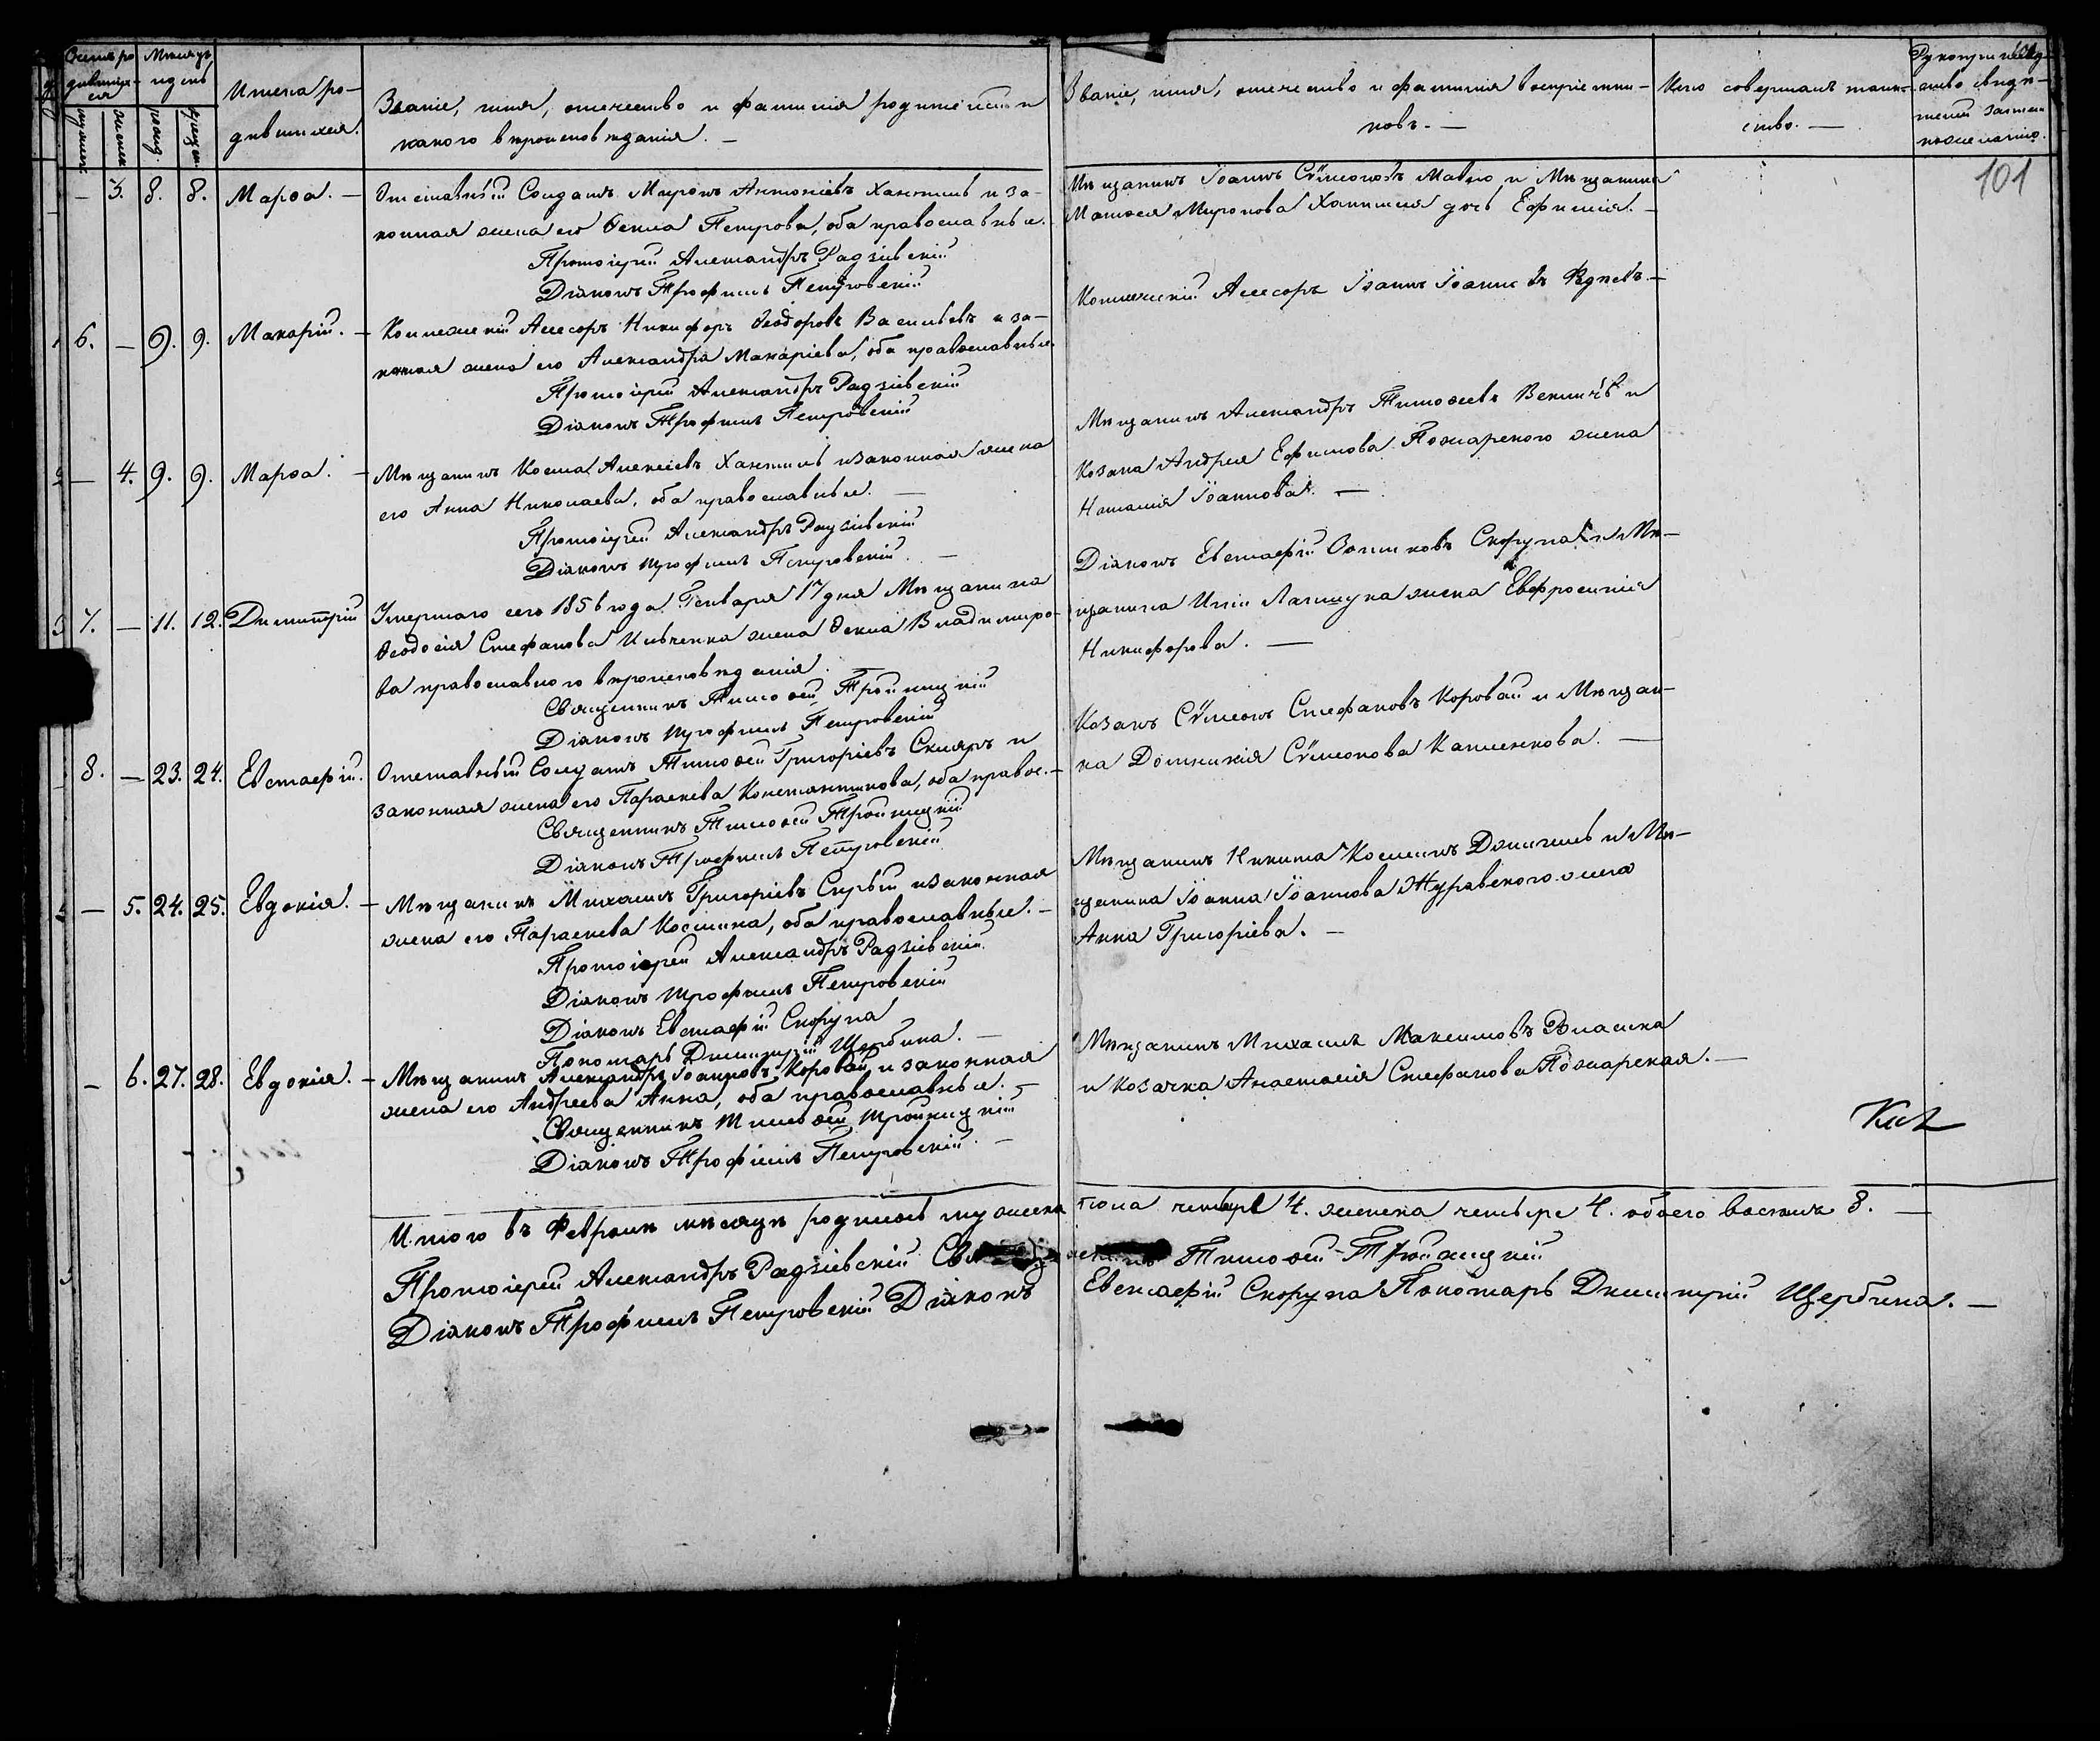 Счетъ родившихся
Мѣсяцъ и день
мужеск.
женск.
рожд.
крещен.
Имена ро-
дившихся.
Званіе, имя, отечество и фамилія родителей и
какого вѣроисповѣданія. —
Званіе, имя, отечество и фамилія воспріемни-
ковъ. —
Кто совершалъ таин-
ство. —
101
— 3. 8. 8. Марѳа. —
Отставный Солдатъ Миронъ Антоніевъ Хантиль и за-
конная жена его Ѳекла Петрова, оба православные.
Протоіерей Александръ Радзіевскій
Діаконъ Трофимъ Петровскій
Мѣщанинъ Іоаннъ Сѵмеоновъ и Мѣщанина
Матѳея Миронова Хантиля дочь Ефимія. —
6. — 9. 9. Макарій. —
Коллежскій Ассесоръ Никифоръ Ѳеодоровъ Васильевъ и за-
конная жена его Александра Макаріева, оба православные
Протоіерей Александръ Радзіевскій
Діаконъ Трофимъ Петровскій
Коллежскій Ассесоръ Іоаннъ Іоанновъ
— 4. 9. 9. Марѳа. —
Мѣщанинъ Косма Алексіевъ Хантиль и законная жена
его Анна Николаева, оба православные. —
Протоіерей Александръ Радзіевскій
Діаконъ Трофимъ Петровскій. —
Мѣщанинъ Александръ Тимоѳеевъ и
Козака Андрея Ефимова Пожарского жена
Наталія Іоаннова. —
7. — 11. 12. Димитрій
Умершаго сего 1856 года Генваря 17 дня Мѣщанина
Ѳеодосія Стефанова Ильченка жена Ѳекла Владимиро-
ва православного вѣроисповѣданія. —
Священникъ Тимоѳей Троицкій
Діаконъ Трофимъ Петровскій
Діаконъ Евстафій Скорупа и Мѣ-
щанина Иліи жена Евфросинія
Никифорова. —
8. — 23. 24. Евстафій.
Отставный Солдатъ Тимоѳей Григоріевъ Скляръ и
законная жена его Параскева Константинова, оба правос. —
Священникъ Тимоѳей Троицкій
Діаконъ Трофимъ Петровскій
Козакъ Сѵмеонъ Стефановъ Коровай и Мѣщан-
ка Домникія Сѵмеонова Калиенкова. —
— 5. 24. 25. Евдокія. —
Мѣщанинъ Михаилъ Григоріевъ Сѣрый и законная
жена его Параскева Космина, оба православные. —
Протоіерей Александръ Радзіевскій
Діаконъ Трофимъ Петровскій
Діаконъ Евстафій Скорупа
Пономарь Димитрій Щербина. —
Мѣщанинъ Никита Косминъ и Мѣ-
щанина Іоанна Іоаннова Журавского жена
Анна Григоріева. —
— 6. 27. 28. Евдокія. —
Мѣщанинъ Александръ Іоанновъ Коровай и законная
жена его Андреева Анна, оба православные. —
Священникъ Тимоѳей Троицкій
Діаконъ Трофимъ Петровскій. —
Мѣщанинъ Михаилъ Максимовъ
и козачка Анастасія Стефанова Пожарская. —
Итого въ Февралѣ мѣсяцѣ родилось мужеска пола четыре 4. женска четыре 4. обоего восемь 8. —
Протоіерей Александръ Радзіевскій Священникъ Тимоѳей Троицкій
Діаконъ Трофимъ Петровскій Діаконъ Евстафій Скорупа Пономарь Димитрій Щербина. —